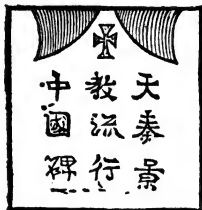 天秦景
教流行
中國碑